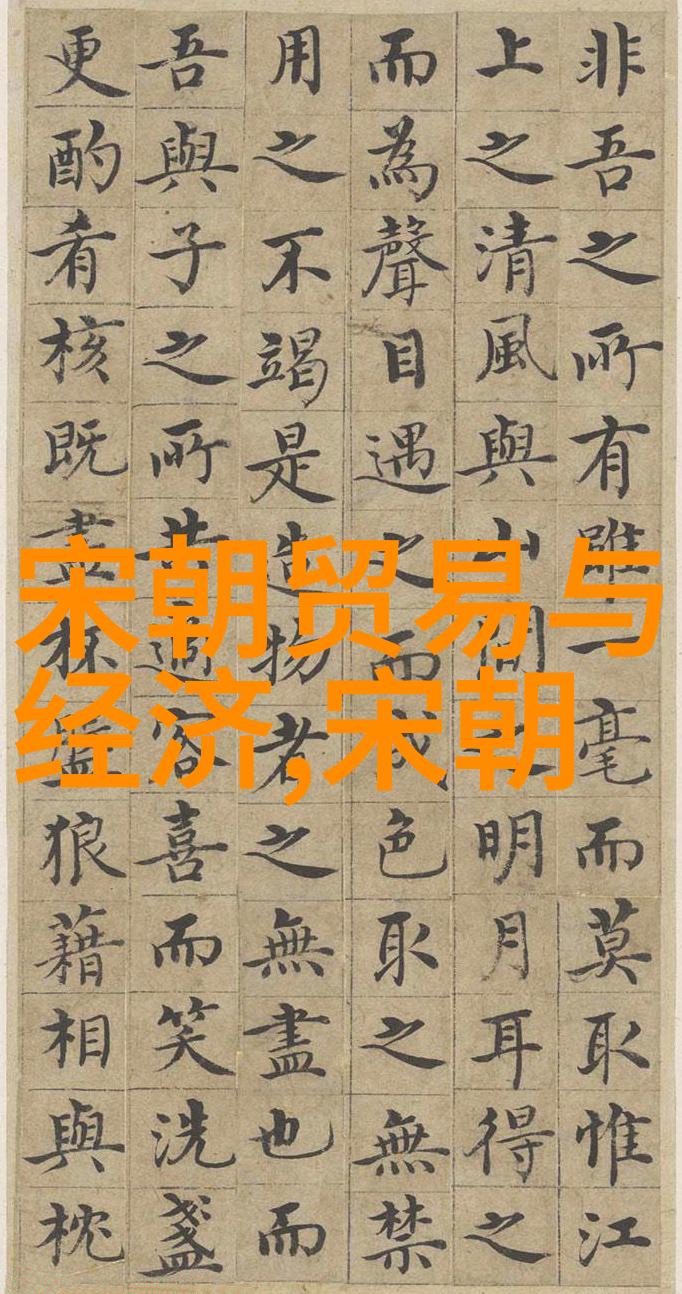 非吾之所有雖一毫而莫取惟江
上之清風與山間之明月耳得之
而為聲目遇之而成色取之無禁
用之不竭是造物者之無盡也而
吾與子之所共適客喜而笑洗盞
更酌肴核既盡杯盤狼藉相與枕
宋朝贸易与
经济,宋朝